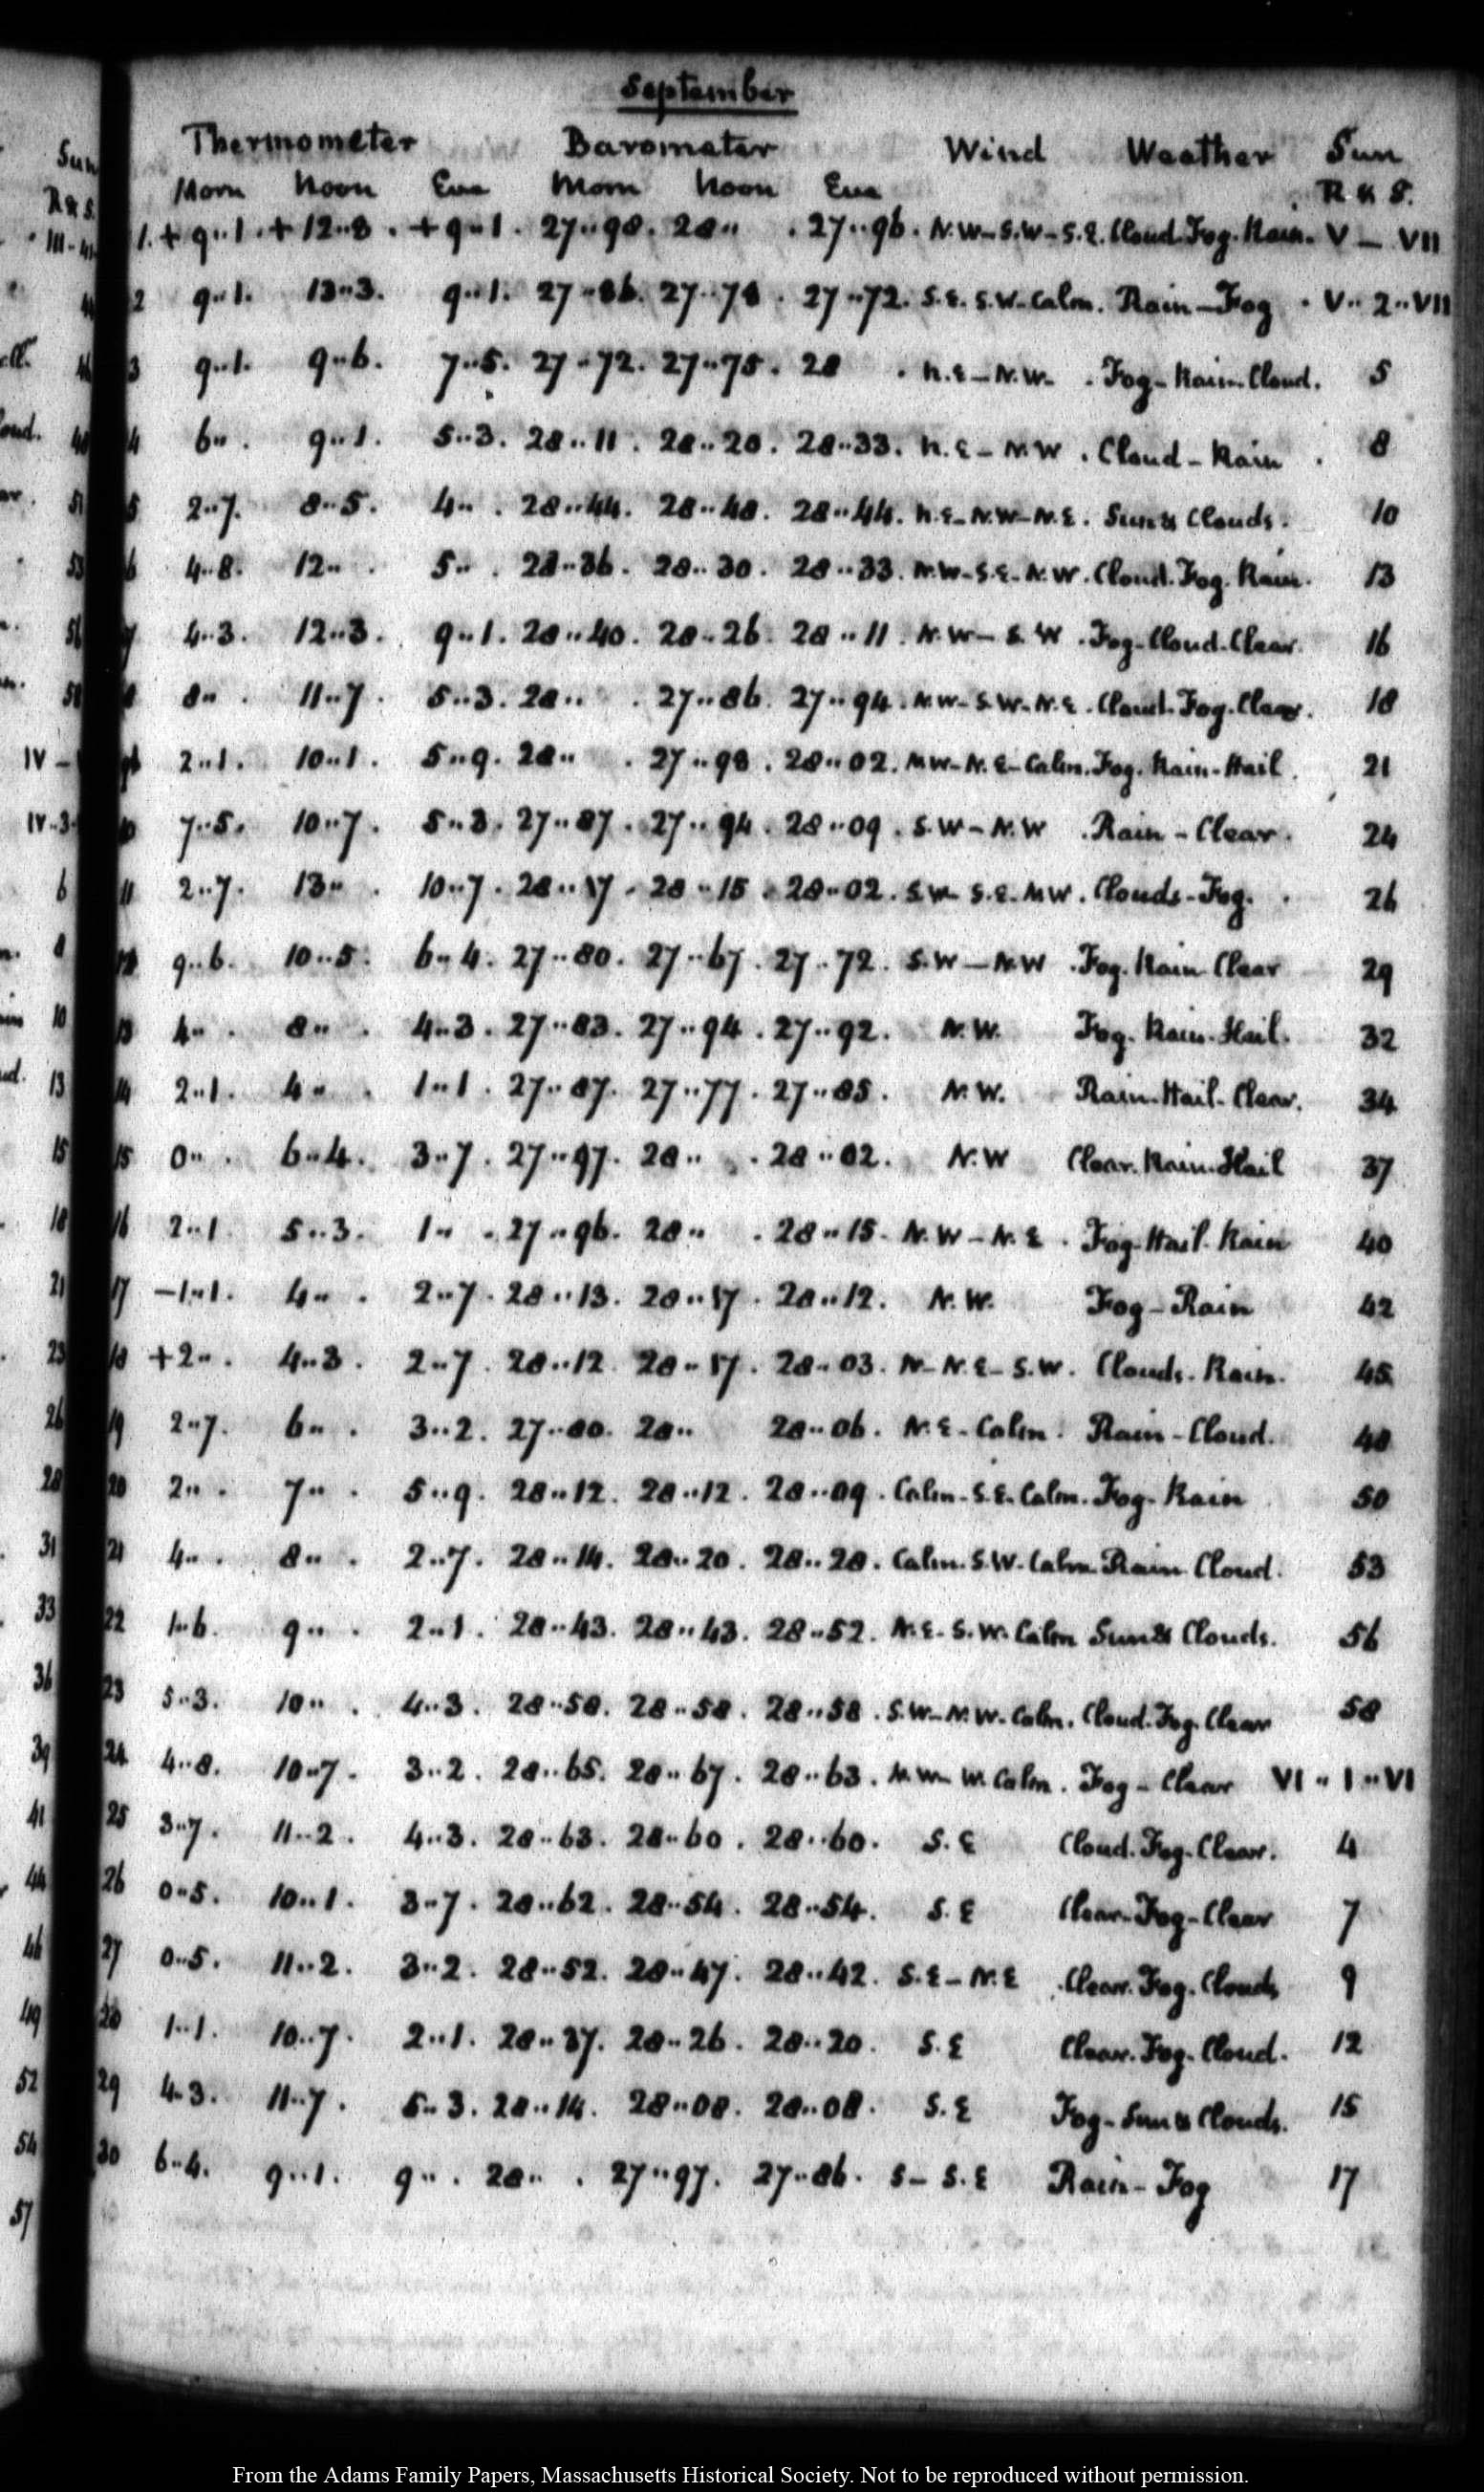 September
Thermometer Barometer Wind Weather Sun
Morn Noon Eve Morn Noon Eve R & S.
1. + 9..1. + 12..8. + 9..1. 27..98. 28.. . 27..96. N.W-S.W-S.E. Cloud. Fog. Rain. V — VII
2 9..1. 13..3. 9..1. 27..86. 27..78. 27..72. S.E. S.W-Calm. Rain-Fog. V..2..VII
3 9..1. 9..6. 7..5. 27..72. 27..75. 28 . N.E-N.W. Fog-Rain-Cloud. 5
4 6.. . 9..1. 5..3. 28..11. 28..20. 28..33. N.E-N W. Cloud-Rain. 8
5 2..7. 8..5. 4.. . 28..44. 28..48. 28..44. N.E-N.W-N.E. Sun & Clouds. 10
6 4..8. 12.. . 5.. . 28..36. 28..30. 28..33. N.W-S.E-N.W. Cloud. Fog. Rain. 13
7 4..3. 12..3. 9..1. 28..40. 28..26. 28..11. N.W-S.W. Fog-Cloud-Clear. 16
8 8.. . 11..7. 5..3. 28.. . 27..86. 27..94. N.W-S.W-N.E. Cloud. Fog. Clear. 18
9 2..1. 10..1. 5..9. 28.. . 27..98. 28..02. N.W-N.E-Calm. Fog. Rain-Hail. 21
10 7..5. 10..7. 5..3. 27..87. 27..94. 28..09. S.W-N.W. Rain-Clear. 24
11 2..7. 13.. . 10..7. 28..17. 28..15. 28..02. S.W- S.E-N.W. Clouds-Fog. 26
12 9..6. 10..5. 6..4. 27..80. 27..67. 27..72. S.W-N.W. Fog. Rain-Clear 29
13 4.. . 8.. . 4..3. 27..83. 27..94. 27..92. N.W. Fog. Rain. Hail. 32
14 2..1. 4.. . 1..1. 27..87. 27..77. 27..85. N.W. Rain-Hail-Clear. 34
15 0.. . 6..4. 3..7. 27..97. 28.. . 28..02. N.W Clear. Rain. Hail 37
16 2..1. 5..3. 1.. . 27..96. 28.. . 28..15. N.W-N.E. Fog-Hail-Rain 40
17 -1..1. 4.. . 2..7. 28..13. 28..17. 28..12. N.W. Fog-Rain 42
18 +2.. . 4..3. 2..7. 28..12. 28..17. 28..03. N-N.E-S.W. Clouds. Rain. 45
19 2..7. 6.. . 3..2. 27..80. 28.. 28..06. N.E-Calm. Rain-Cloud. 48
20 2.. . 7.. . 5..9. 28..12. 28..12. 28..09. Calm-S.E-Calm. Fog-Rain 50
21 4.. . 8.. . 2..7. 28..14. 28..20. 28..28. Calm. S.W. Calm Rain Cloud. 53
22 1..6. 9.. . 2..1. 28..43. 28..43. 28..52. N.E-S.W. Calm Sun & Clouds. 56
23 5..3. 10.. . 4..3. 28..58. 28..58. 28..58. S.W-N.W. Calm. Cloud. Fog. Clear 58
24 4..8. 10..7. 3..2. 28..65. 28..67. 28..63. N.W- W. Calm. Fog-Clear VI..1..VI
25 3..7. 11..2. 4..3. 28..63. 28..60. 28..60. S.E Cloud. Fog-Clear. 4
26 0..5. 10..1. 3..7. 28..62. 28..54. 28..54. S.E Clear-Fog-Clear 7
27 0..5. 11..2. 3..2. 28..52. 28..47. 28..42. S.E-N.E. Clear. Fog. Clouds 9
28 1..1. 10..7. 2..1. 28..37. 28..26. 28..20. S.E Clear. Fog. Cloud. 12
29 4..3. 11..7. 5..3. 28..14. 28..08. 28..08. S.E Fog-Sun & Clouds. 15
30 6..4. 9..1. 9.. . 28.. . 27..97. 27..86. S-S.E Rain-Fog 17
From the Adams Family Papers, Massachusetts Historical Society. Not to be reproduced without permission.